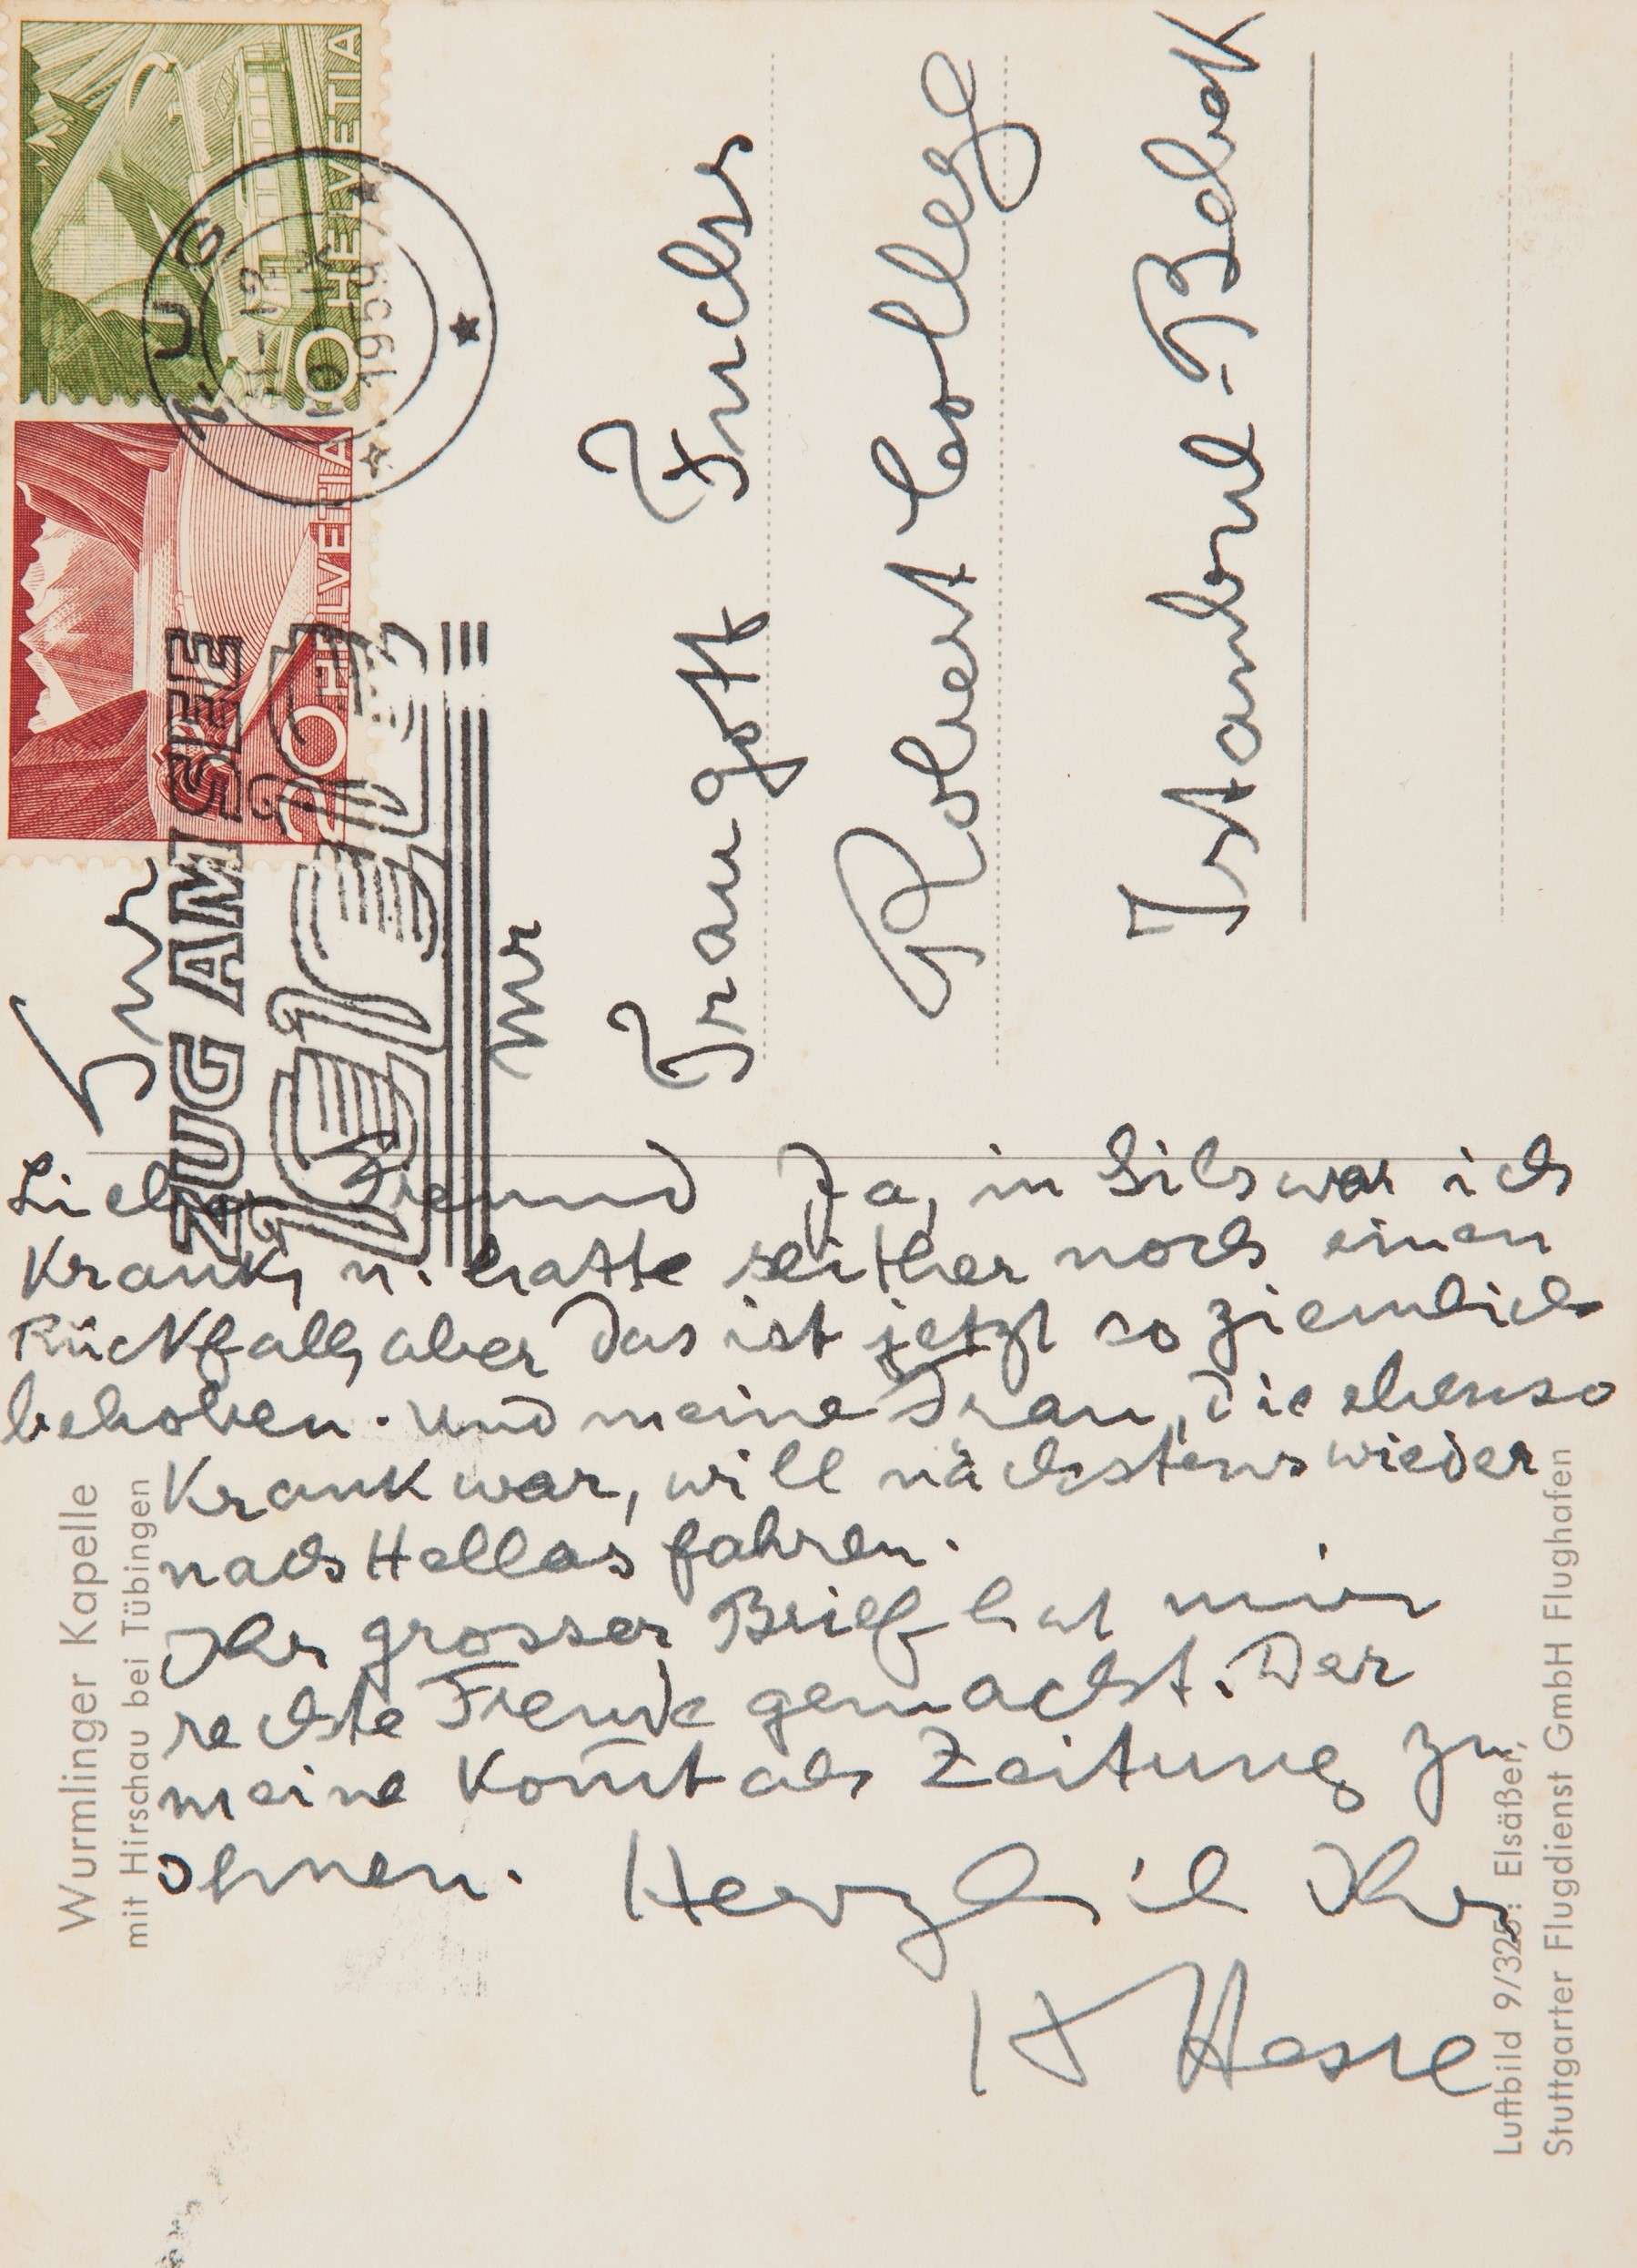 HELVETIA
10
HELVETIA
20
ZUG
11-12
IX
1959
ZUG AM SEE
Mr
Traugott Fuchs
Robert College
Istanbul-Bebek
Lieber Freund Ja, in Sils war ich
krank, u. hatte seither noch einen
Rückfall, aber das ist jetzt so ziemlich
behoben. Und meine Frau, die ebenso
krank war, will nächstens wieder
nach Hellas fahren.
Ihr grosser Brief hat mir
rechte Freude gemacht. Der
meine kom̄t als Zeitung zu
Ihnen. Herzlich Ihr
H Hesse
Wurmlinger Kapelle
mit Hirschau bei Tübingen
Luftbild 9/325: Elsäßer,
Stuttgarter Flugdienst GmbH Flughafen